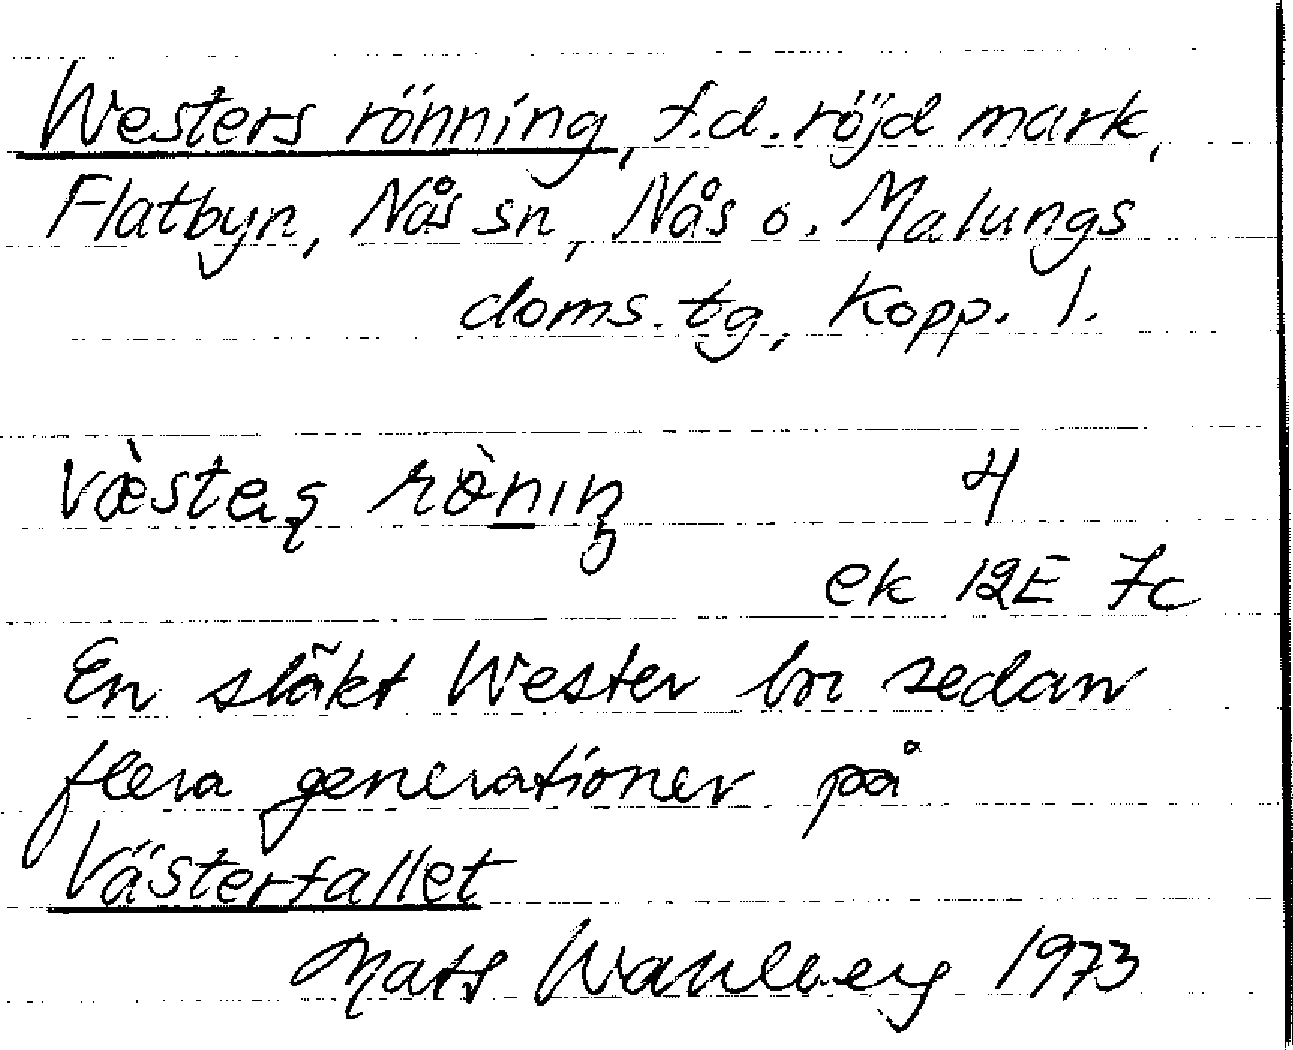 Westers rönning, f.d. röjd mark,
Flatbyn, Nås sn, Nås o. Malungs
doms. tg, Kopp. l.
4
ek 12E 7c
En släkt Wester bor sedan
flera generationer på
Västerfallet
Mats Wahlberg 1973